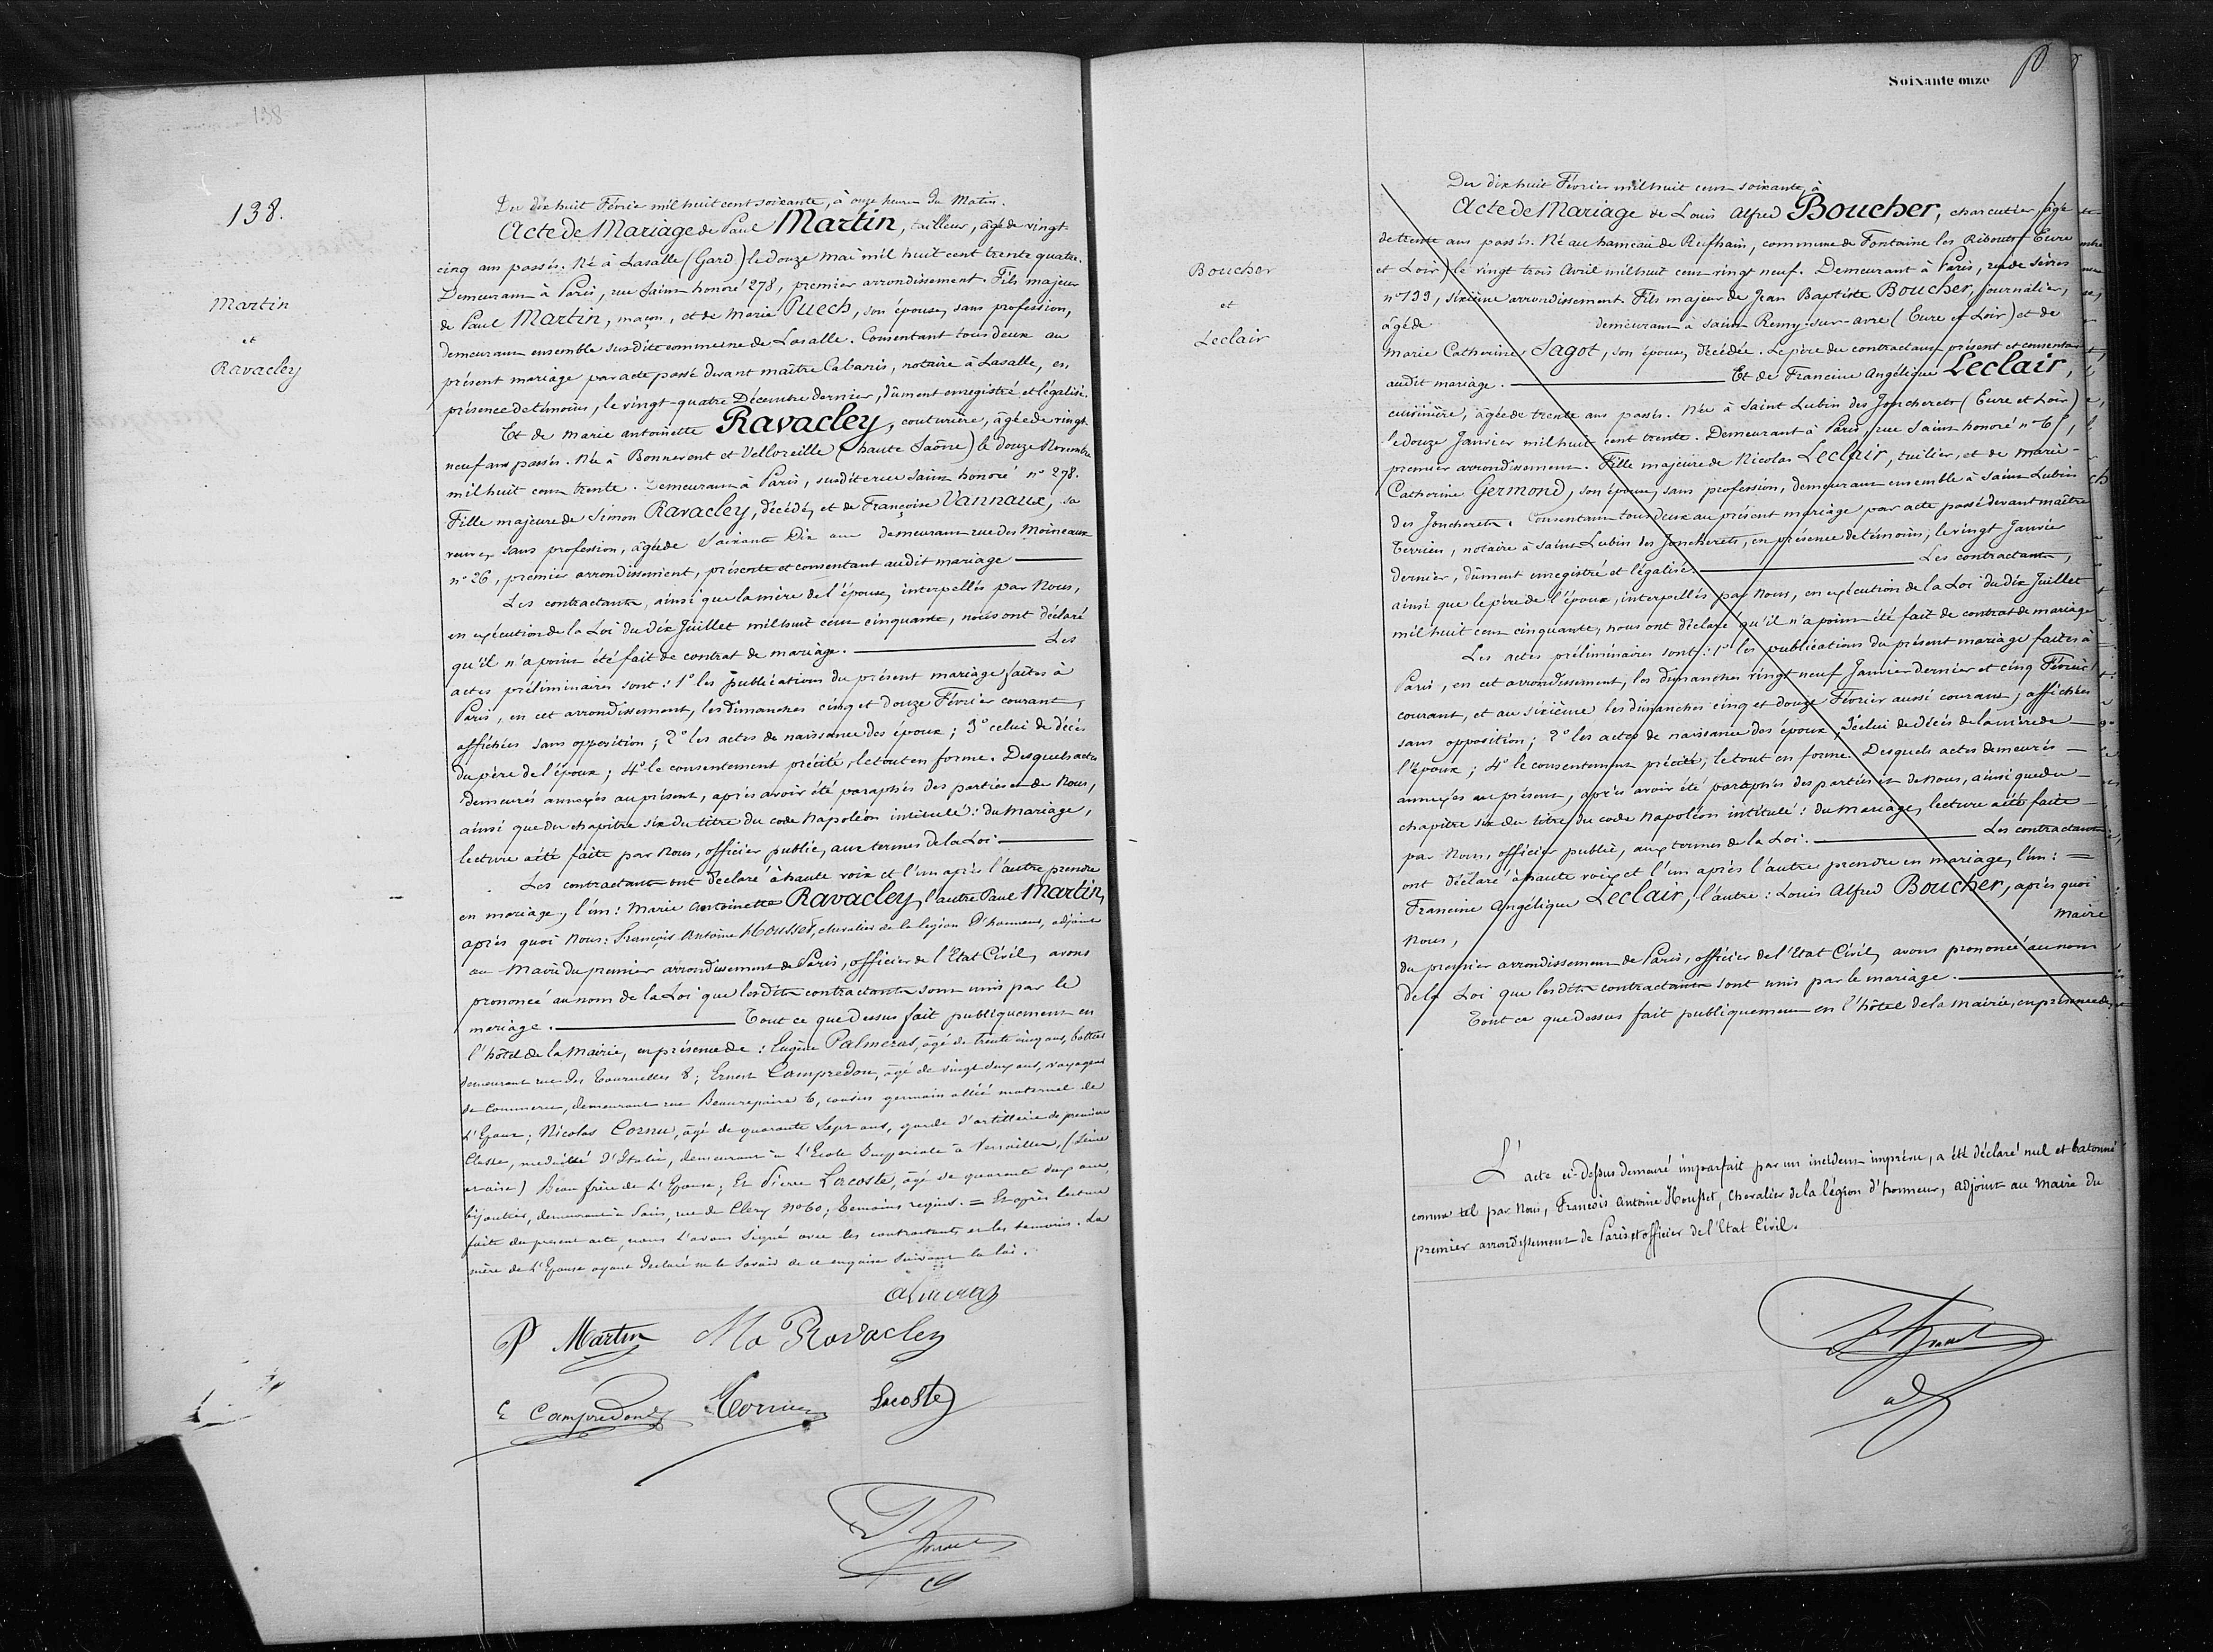 138.
Martin
et
Ravacley
Du dix huit Février mil huit cent soixante, à onze heures du Matin.
Acte de Mariage de Paul Martin, tailleur, âgé de vingt
cinq ans passés. Né à Lasalle (Gard) le douze mai mil huit cent trente quatre.
Demeurant à Paris, rue Saint honoré 278, premier arrondissement. Fils majeur
de Paul Martin, maçon, et de Marie Puech, son épouse, sans profession,
demeurant ensemble susdite commune de Lasalle. Consentant tous deux au
présent mariage par acte passé devant maître Cabanis, notaire à Lasalle, en
présence de témoins, le vingt-quatre Décembre dernier, dûment enregistré et légalisé.
Et de Marie antoinette Ravacley, couturière, âgée de vingt
neuf ans passés. Née à Bonnevent et Velloreille (haute Saône) le douze Novembre
mil huit cent trente. Demeurant à Paris, susdite rue Saint honoré n° 278.
Fille majeure de Simon Ravacley, décédé, et de Françoise Vannaux, sa
veuve, sans profession, âgée de Soixante Dix ans demeurant rue des Moineaux
n° 26, premier arrondissement, présente et consentant audit mariage
Les contractants, ainsi que la mère de l'épouse, interpellés par Nous,
en exécution de la Loi du dix Juillet mil huit cent cinquante, nous ont déclaré
qu'il n'a point été fait de contrat de mariage. Les
actes préliminaires sont : 1° les publications du présent mariage faites à
Paris, en cet arrondissement, les dimanches cinq et douze Février courant,
affichées sans opposition ; 2° les actes de naissance des époux ; 3° celui de décès
du père de l'épouse ; 4° le consentement précité, le tout en forme. Desquels actes
demeurés annexés au présent, après avoir été paraphés des parties et de Nous,
ainsi que du chapitre six du titre du code Napoléon intitulé : du Mariage,
lecture a été faite par Nous, officier public, aux termes de la Loi.
Les contractants ont déclaré à haute voix et l'un après l'autre prendre
en mariage, l'un : Marie Antoinette Ravacley, l'autre Paul Martin,
après quoi Nous : François Antoine Housset, chevalier de la légion d'honneur, adjoint
au Maire du premier arrondissement de Paris, officier de l'Etat Civil, avons
prononcé au nom de la Loi que les dits contractants sont unis par le
mariage. Tout ce que Dessus fait publiquement en
l'hôtel de la Mairie, en présence de : Eugène Palmeras, âgé de trente cinq ans, bottier
demeurant rue des Tournelles 8 ; Ernest Campredon, âgé de vingt deux ans, voyageur
de Commerce, demeurant rue Beaurepaire 6, cousin germain allié maternel de
L'Epoux ; Nicolas Cornu, âgé de quarante Sept ans, garde d'artillerie de première
Classe, médaillé d'Italie, demeurant à L'Ecole Impériale à Versailles, (Seine
et oise) Beau frère de L'Epouse ; Et Pierre Lacoste, âgé de quarante deux ans,
bijoutier, demeurant à Paris, rue de Clery N° 60 ; témoins requis. = Et après lecture
faite du présent acte, nous l'avons Signé avec les contractants et les témoins. La
mère de L'Epouse ayant déclaré ne le Savoir de ce enquise Suivant la loi.
P Martin Ma Ravacley
E Campredon Cornu Lacoste
Soixante onze
Boucher
et
Leclair
Du dix huit Février mil huit cent soixante, à
Acte de Mariage de Louis Alfred Boucher, charcutier, âgé
de trente ans passés. Né au hameau de , commune de Fontaine les Ribouts (Eure
et Loir) le vingt trois Avril mil huit cent vingt neuf. Demeurant à Paris, rue de Sèvres
n° 133, sixième arrondissement. Fils majeur de Jean Baptiste Boucher, journalier,
âgé de demeurant à Saint Remy-sur-avre (Eure et Loir) et de
Marie Catherine Sagot, son épouse, décédée. Le père du contractant présent et consentant
audit mariage. Et de Francine Angélique Leclair,
cuisinière, âgée de trente ans passés. Née à Saint Lubin des Joncherets (Eure et Loir)
le douze Janvier mil huit cent trente. Demeurant à Paris, rue Saint honoré n°
premier arrondissement. Fille majeure de Nicolas Leclair, tuilier, et de marie-
Catherine Germond, son épouse, sans profession, demeurant ensemble à Saint Lubin
des Joncherets. Consentant tous deux au présent mariage par acte passé devant maître
Terrien, notaire à Saint Lubin des Joncherets, en présence de témoins, le vingt Janvier
dernier, dûment enregistré et légalisé. Les contractants,
ainsi que le père de l'époux, interpellés par Nous, en exécution de la Loi du dix Juillet
mil huit cent cinquante, nous ont déclaré qu'il n'a point été fait de contrat de mariage
Les actes préliminaires sont : 1° les publications du présent mariage faites à
Paris, en cet arrondissement, les dimanches vingt neuf Janvier dernier et cinq Février
courant, et au sixième les dimanches cinq et douze Février aussi courant, affichées
sans opposition ; 2° les actes de naissance des époux ; 3° celui de décès de la mère de
l'époux ; 4° le consentement précité, le tout en forme. Desquels actes demeurés
annexés au présent, après avoir été paraphés des parties et de Nous, ainsi que du
chapitre six du titre du code Napoléon intitulé : du Mariage, lecture a été faite
par Nous, officier public, aux termes de la Loi. Les contractants
ont déclaré à haute voix et l'un après l'autre prendre en mariage, l'un : =
Francine Angélique Leclair, l'autre : Louis Alfred Boucher, après quoi
Nous, Maire
du premier arrondissement de Paris, officier de l'Etat Civil, avons prononcé au nom
de la Loi que les dits contractants sont unis par le mariage.
Tout ce que Dessus fait publiquement en l'hôtel de la Mairie, en présence de
L'acte ci-Dessus demeuré imparfait par un incident imprévu, a été déclaré nul et batonné
comme tel par Nous, François Antoine Housset, Chevalier de la légion d'honneur, adjoint au Maire du
premier arrondissement de Paris et officier de l'Etat Civil.